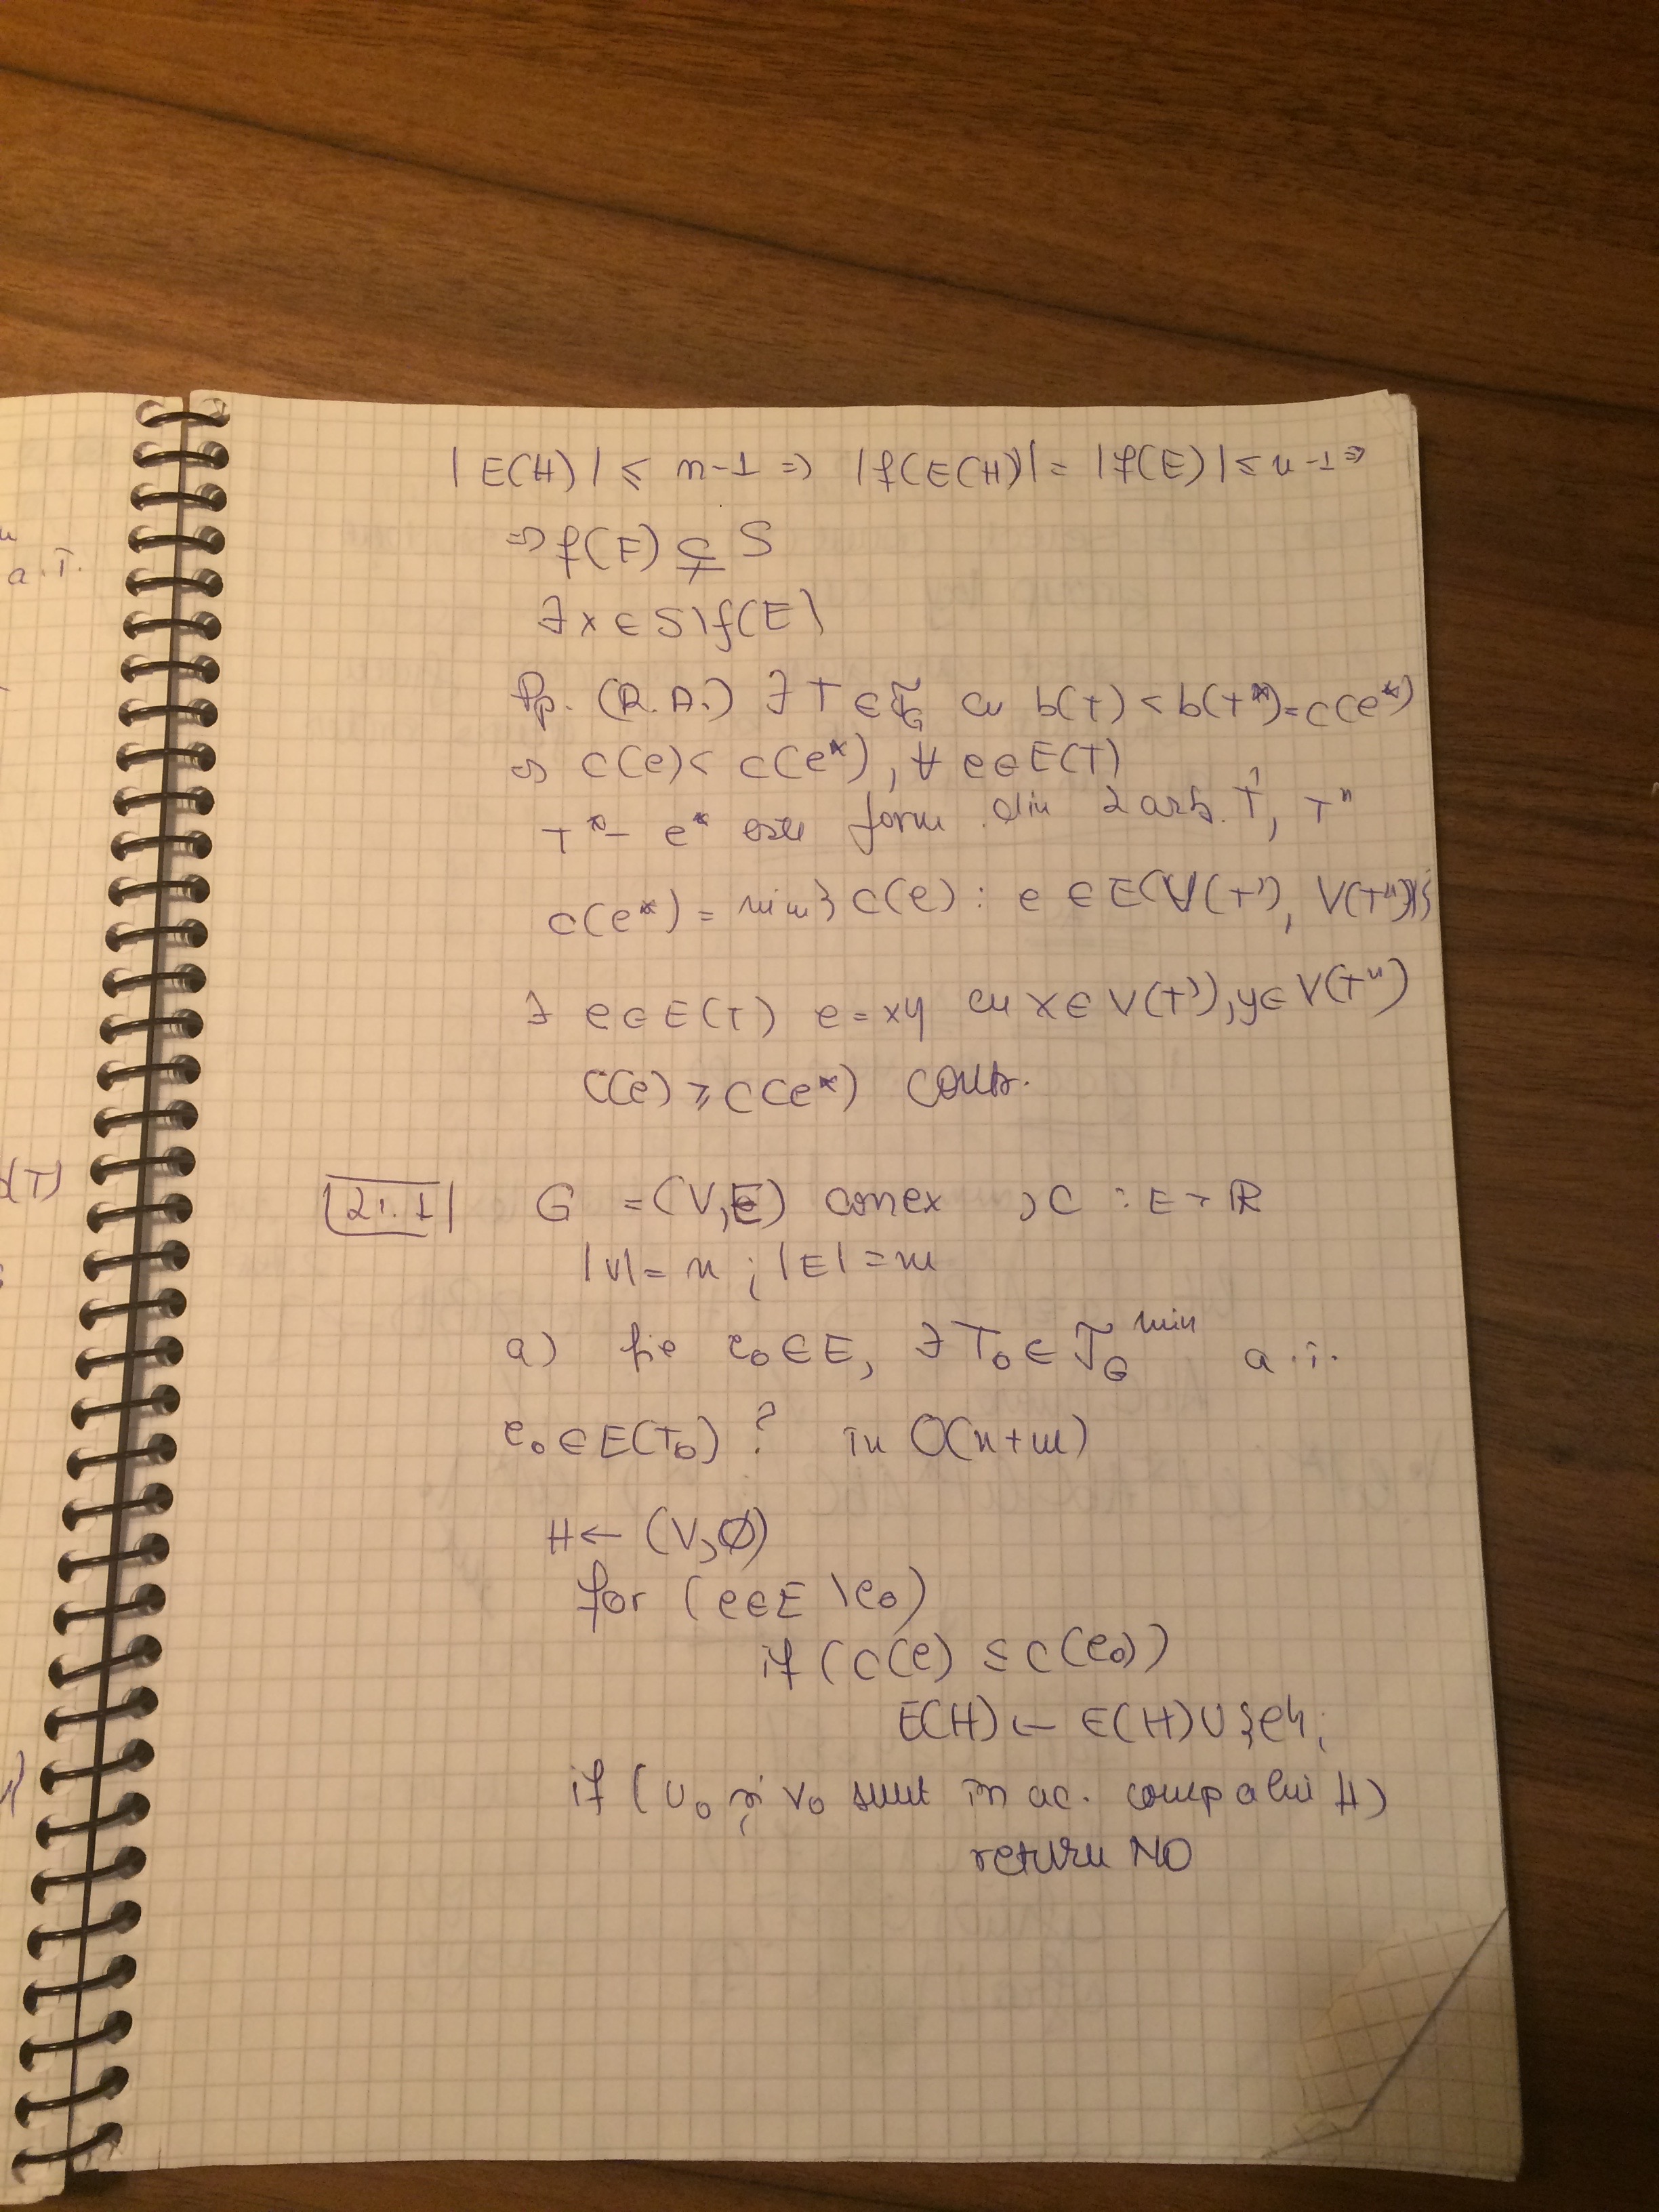 | E(H) | ≤ n-1 => |f(E(H))| = |f(E)| ≤ n-1 =>
=> f(E) ⊊ S
∃ x ∈ S \ f(E)
Pp. (R.A.) ∃ T ∈ 𝒯_G cu b(T) < b(T*) = c(e*)
=> c(e) < c(e*), ∀ e ∈ E(T)
T* - e* este form. din 2 arb. T', T"
c(e*) = min { c(e) : e ∈ E(V(T'), V(T")) }
∃ e ∈ E(T) e = xy cu x ∈ V(T'), y ∈ V(T")
c(e) ≥ c(e*) contr.
G = (V, E) conex , C : E → ℝ
|V| = n ; |E| = m
a) fie e₀ ∈ E, ∃ T₀ ∈ 𝒯_G^min a.î.
e₀ ∈ E(T₀) ? în O(n+m)
H ← (V, ∅)
for (e ∈ E \ e₀)
if (c(e) ≤ c(e₀))
E(H) ← E(H) ∪ {e};
if (u₀ și v₀ sunt în ac. comp a lui H)
return NO
a.î.
(T)